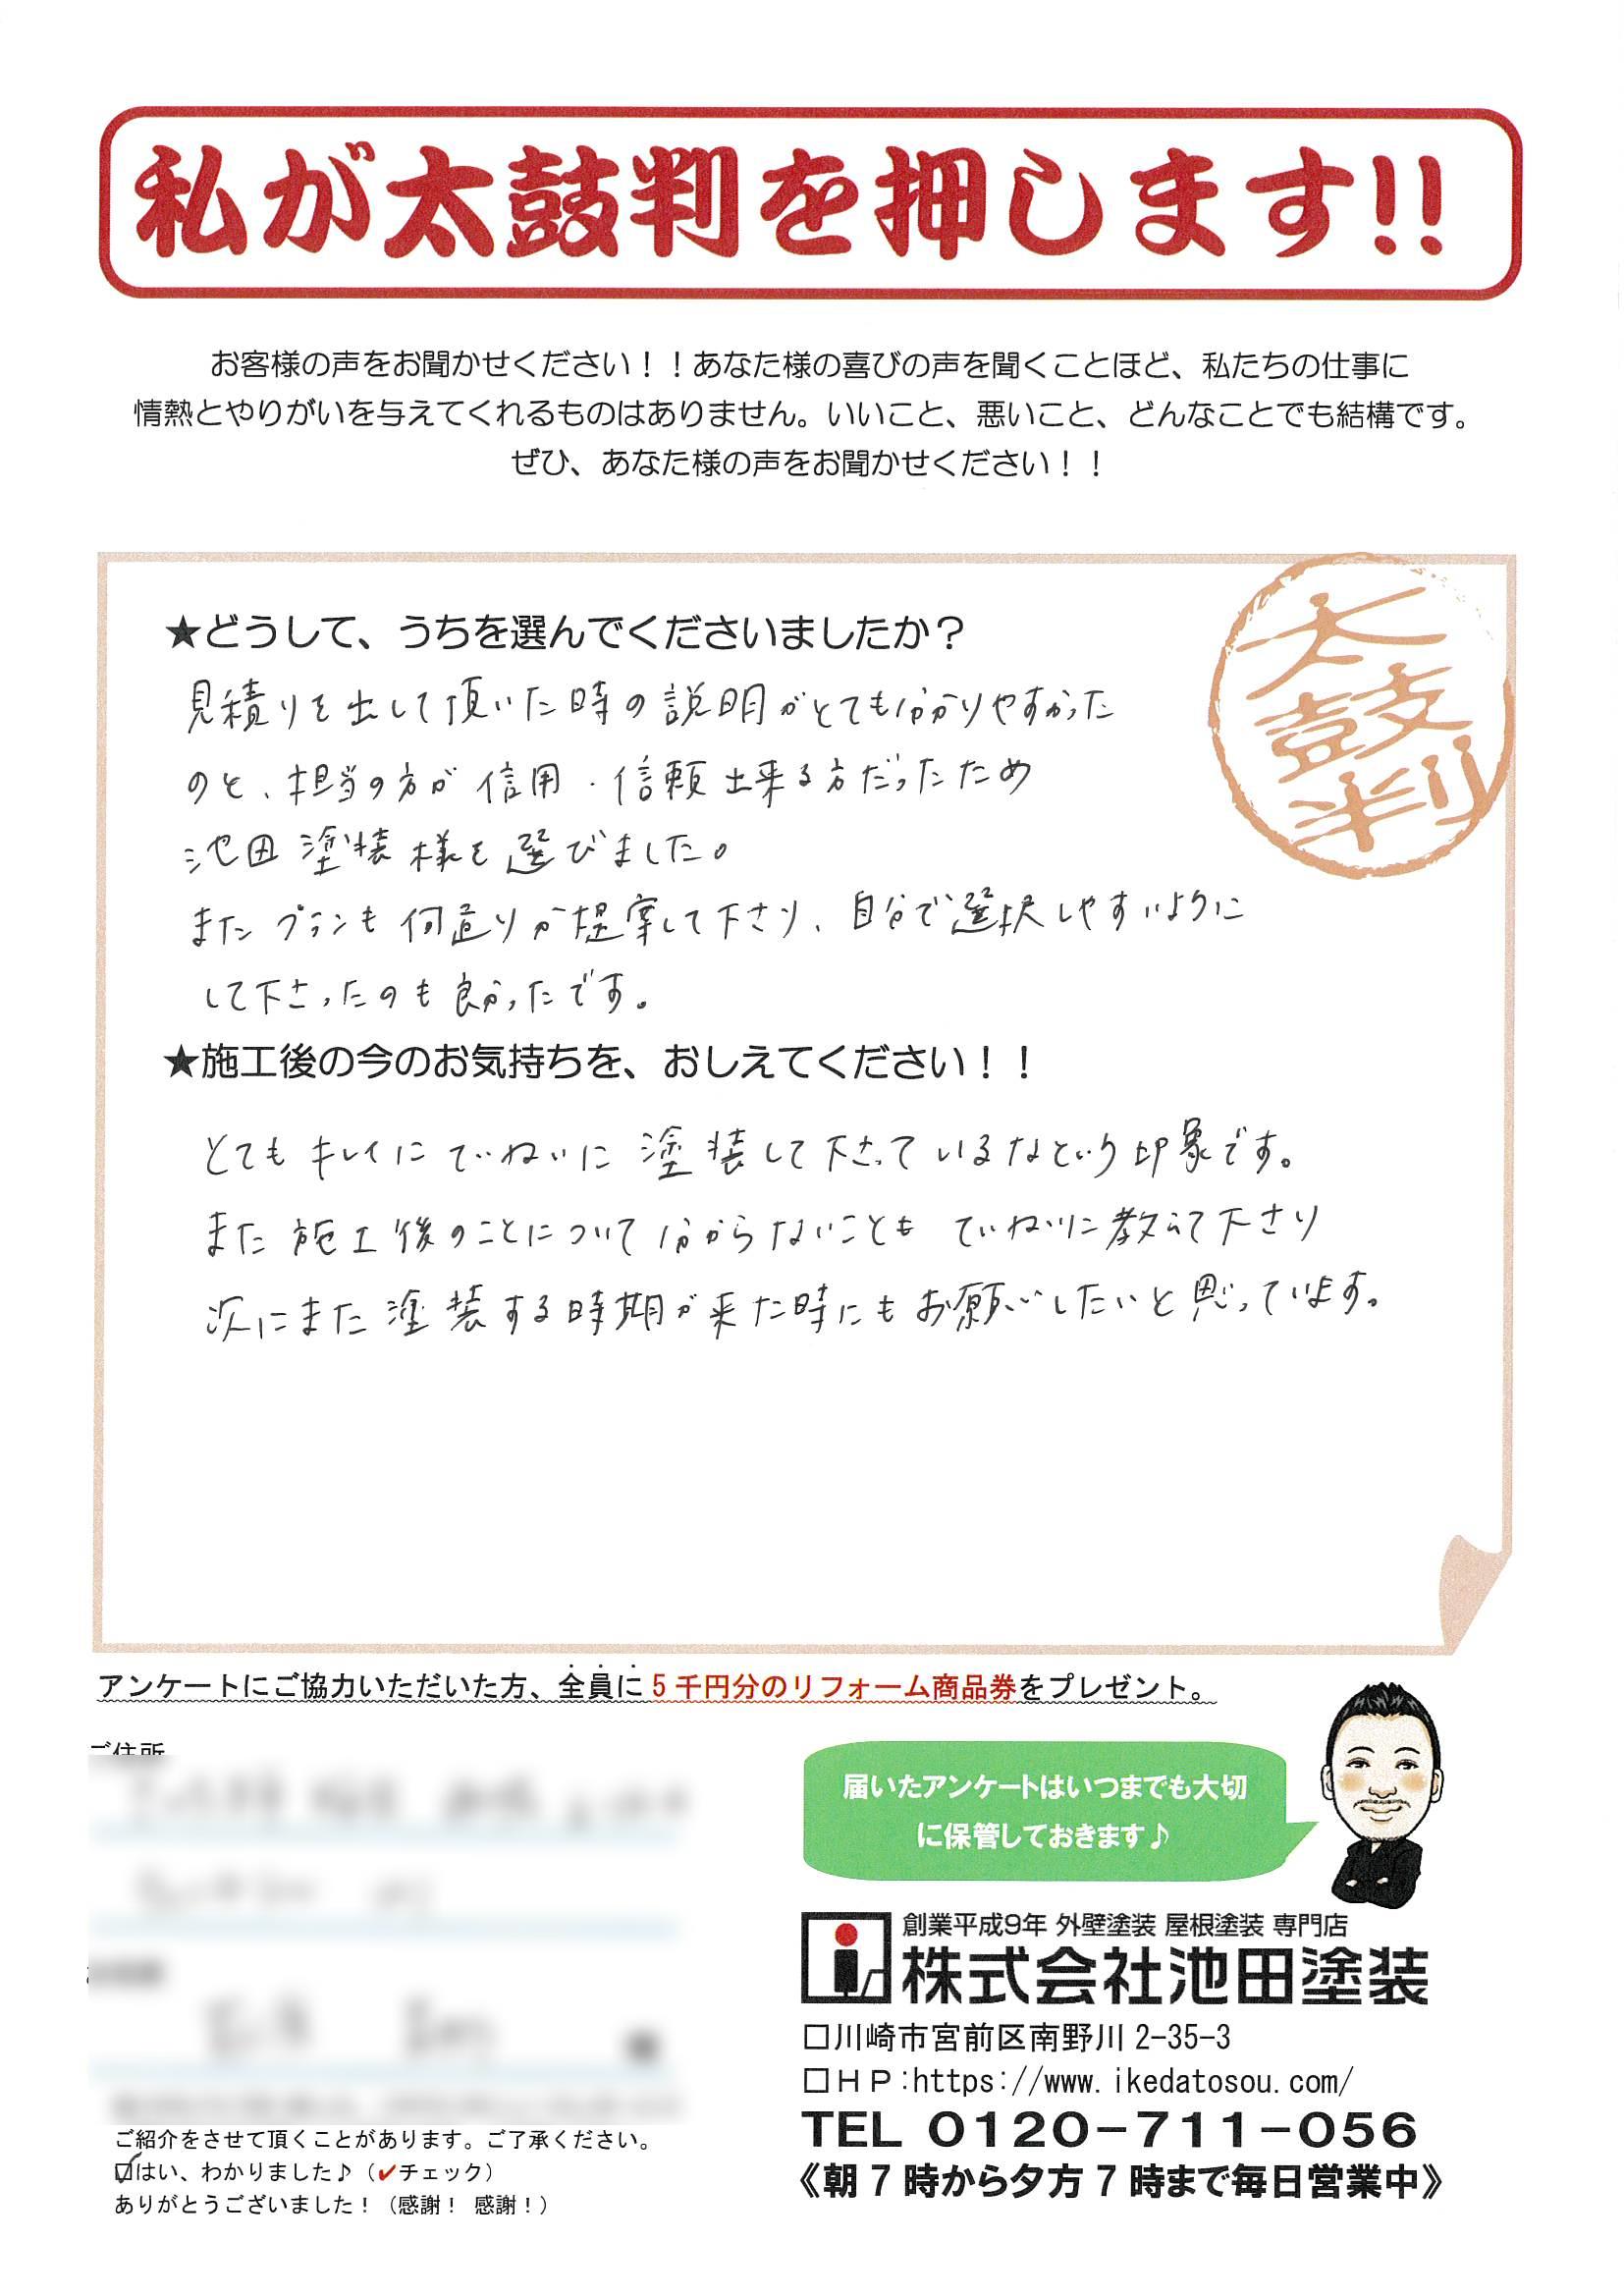 私が太鼓判を押します!!
お客様の声をお聞かせください！！あなた様の喜びの声を聞くことほど、私たちの仕事に
情熱とやりがいを与えてくれるものはありません。いいこと、悪いこと、どんなことでも結構です。
ぜひ、あなた様の声をお聞かせください！！
太鼓判
★どうして、うちを選んでくださいましたか？
見積りを出して頂いた時の説明がとても分かりやすかった
のと、担当の方が信用・信頼出来る方だったため
池田塗装様を選びました。
またプランも何造りか提案して下さり、自分で選択しやすいように
して下さったのも良かったです。
★施工後の今のお気持ちを、おしえてください！！
とてもキレイにていねいに塗装して下さっているなという印象です。
また施工後のことについて分からないこともていねいに教えて下さり
次にまた塗装する時期が来た時にもお願いしたいと思っています。
アンケートにご協力いただいた方、全員に5千円分のリフォーム商品券をプレゼント。
ご住所
届いたアンケートはいつまでも大切
に保管しておきます♪
創業平成9年 外壁塗装 屋根塗装 専門店
株式会社池田塗装
□川崎市宮前区南野川2-35-3
□ＨＰ:https://www.ikedatosou.com/
TEL 0120-711-056
《朝7時から夕方7時まで毎日営業中》
ご紹介をさせて頂くことがあります。ご了承ください。
☑はい、わかりました♪（✔チェック）
ありがとうございました！（感謝！ 感謝！）